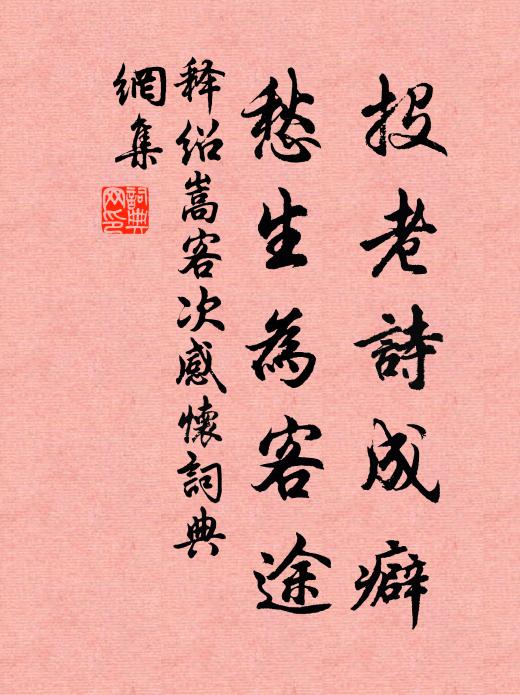 投老詩成癖
愁生為客途
释绍嵩客次感懷詞典
網集
詞典
网印